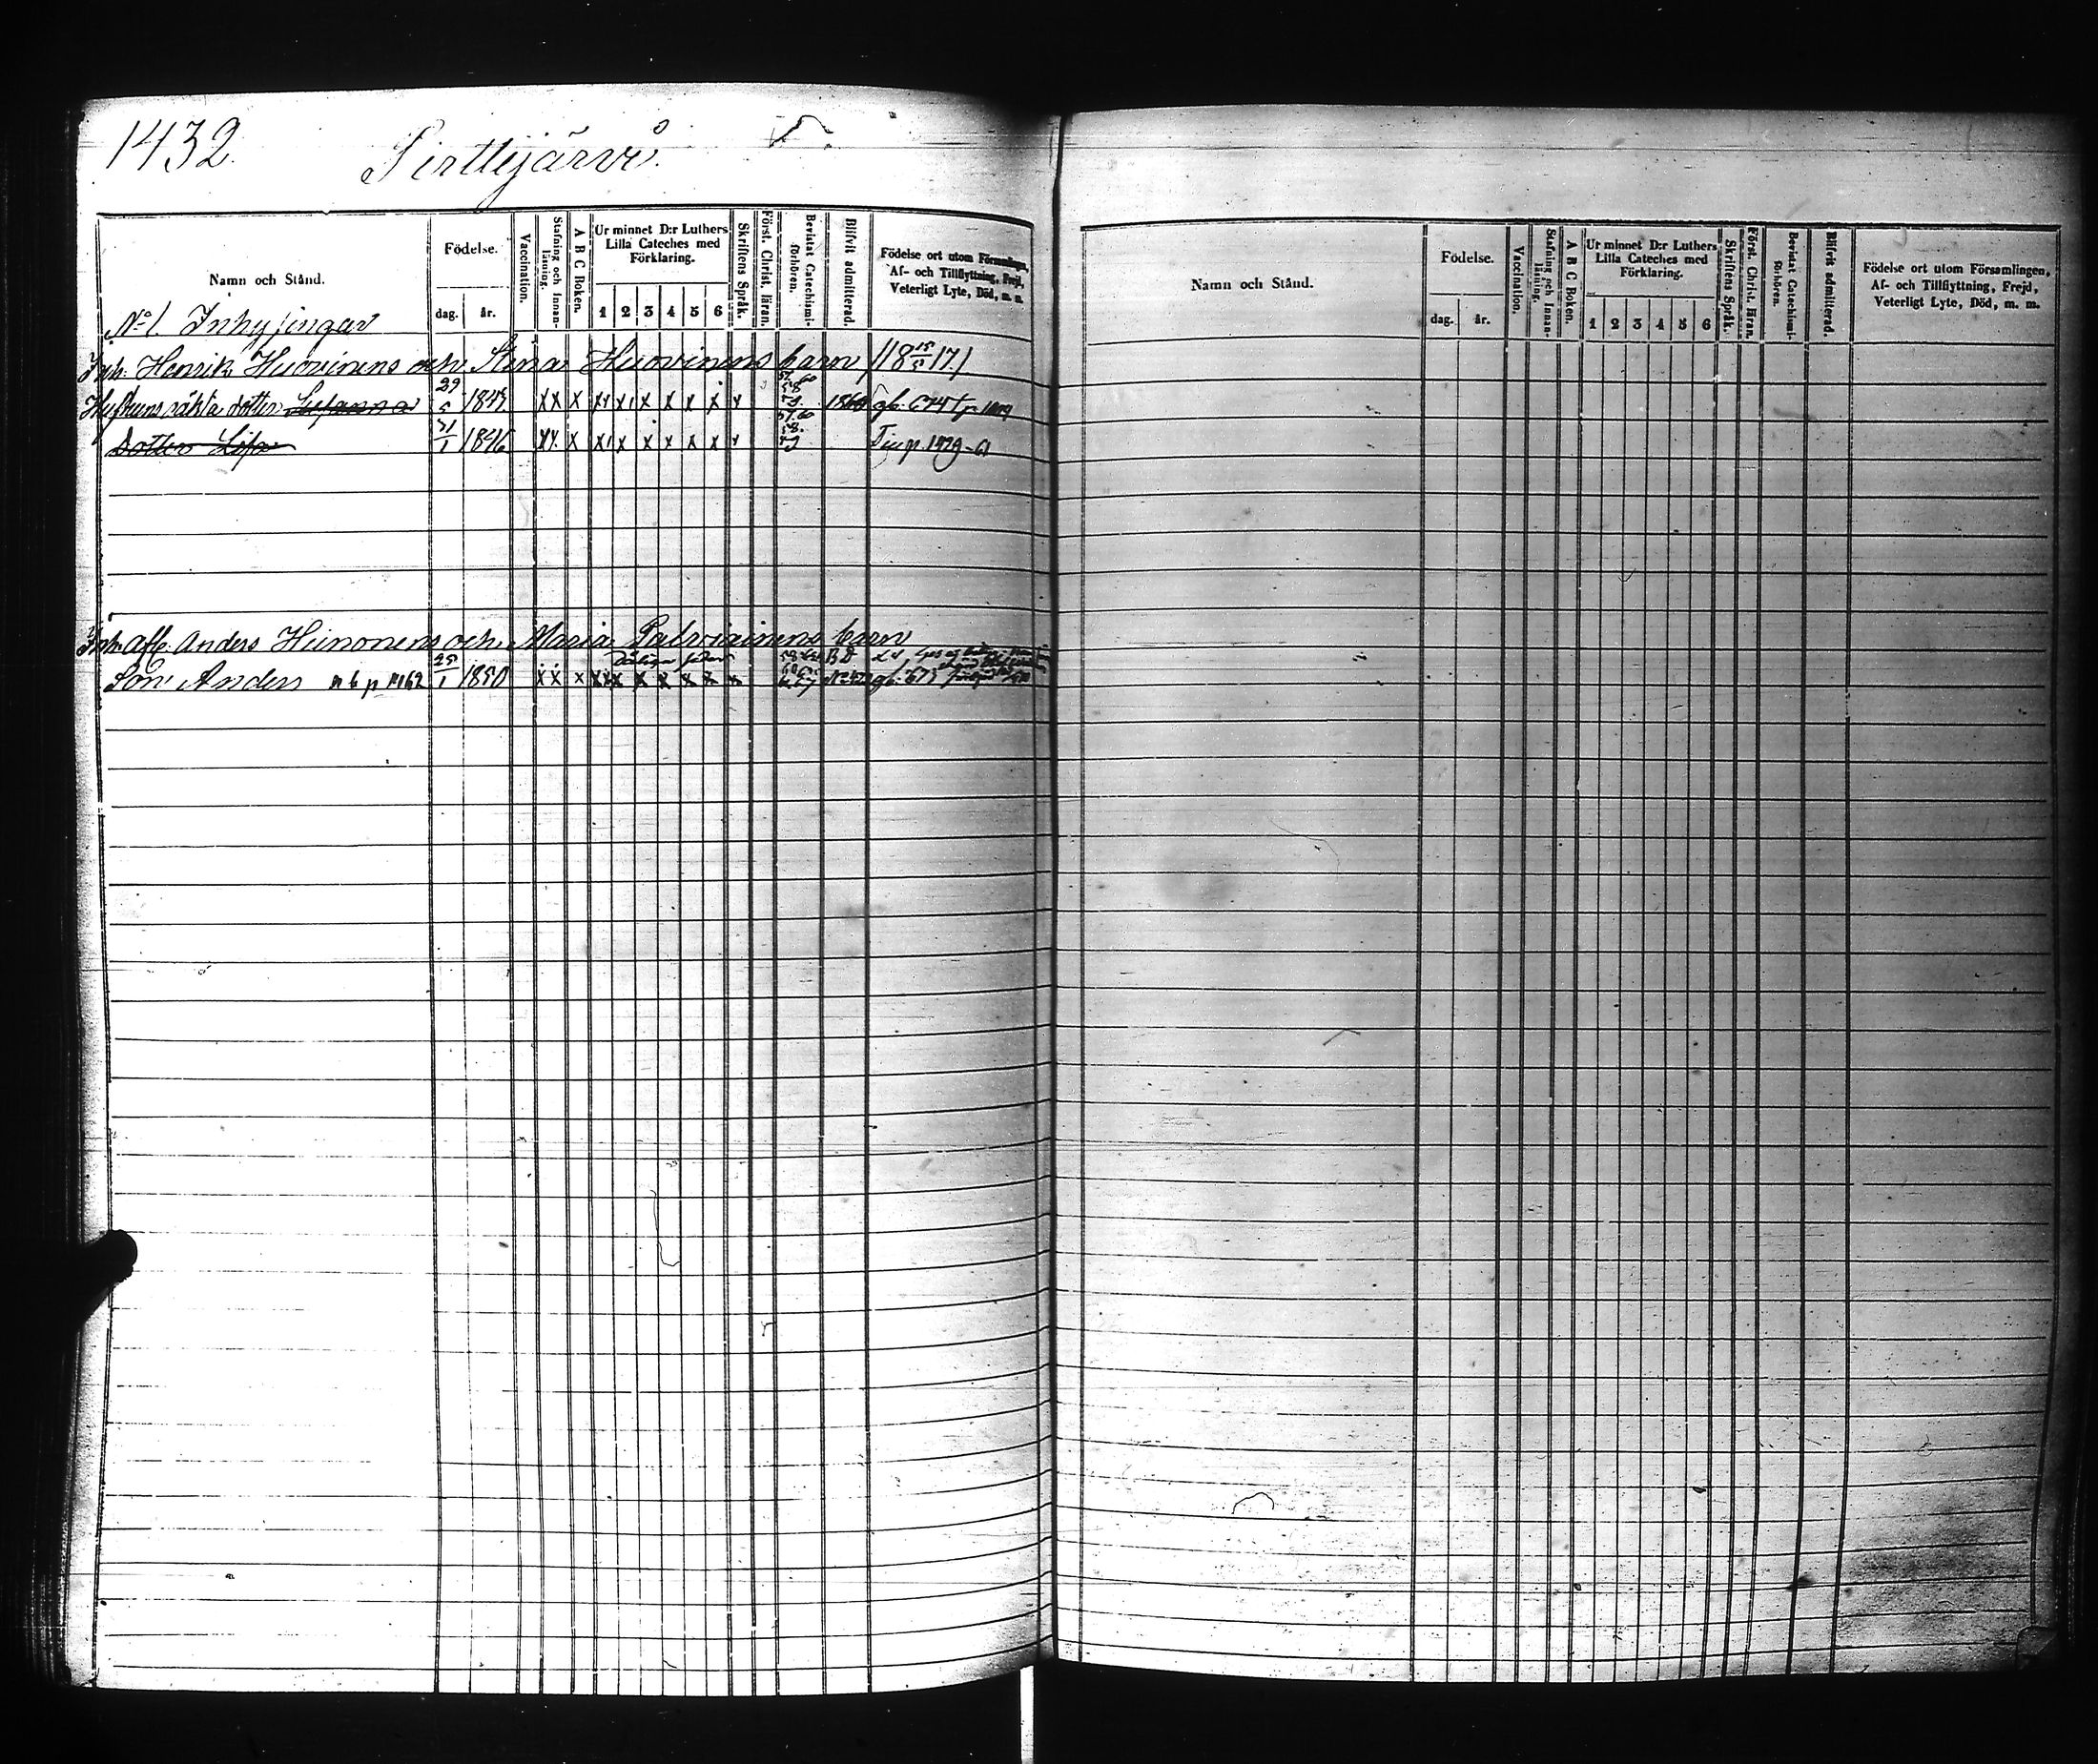 1432.
Pirttijärvi.
Namn och Stånd.
Födelse.
dag.
år.
Vaccination.
Stafning och Innanläsning.
A B C Boken.
Ur minnet D:r Luthers Lilla Cateches med Förklaring.
1 2 3 4 5 6
Skriftens Språk.
Först. Christ. läran.
Bevistat Catechismiförhören.
Blifvit admitterad.
Födelse ort utom Församlingen,
Af- och Tillflyttning, Frejd,
Veterligt Lyte, Död, m. m.
No 1. Inhysingar
Inh. Henrik Huovinens och Stina Huovinens barn
Hustruns oäkta dotter Susanna 29/5 184 x x x x x x x x x 1860
Dotter Lisa 31/1 1846 x x x x x x x x x
Inh. Afl. Anders Heinonens och Maria barn
Son Anders 25/1 1850 x x x x x x x x x
Namn och Stånd.
Födelse.
dag.
år.
Vaccination.
Stafning och Innanläsning.
A B C Boken.
Ur minnet D:r Luthers Lilla Cateches med Förklaring.
1 2 3 4 5 6
Skriftens Språk.
Först. Christ. läran.
Bevistat Catechismiförhören.
Blifvit admitterad.
Födelse ort utom Församlingen,
Af- och Tillflyttning, Frejd,
Veterligt Lyte, Död, m. m.